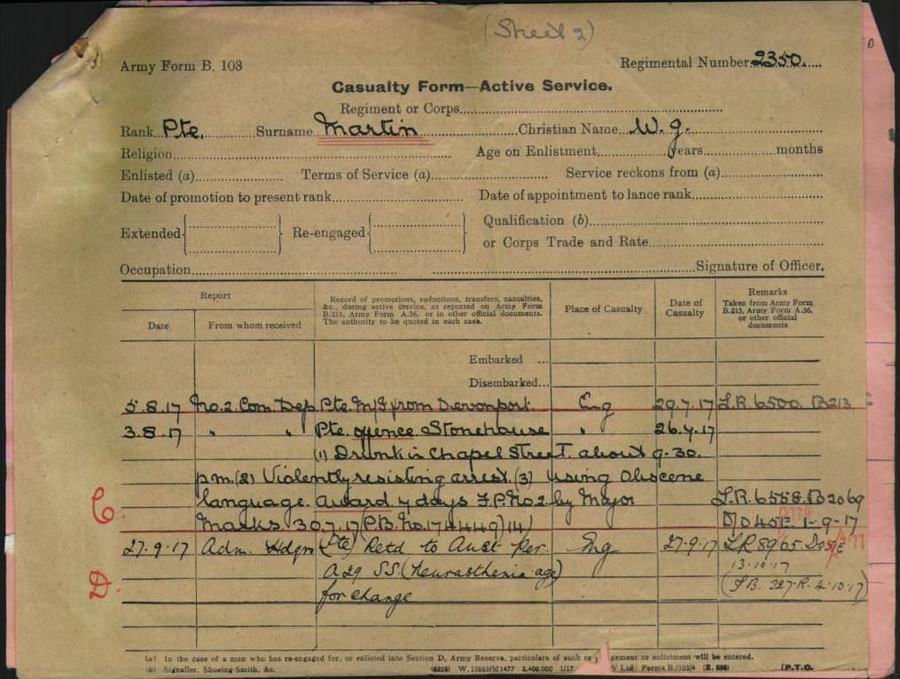 (Sheet 2)
Army Form B. 103
Regimental Number 2350.
Casualty Form—Active Service.
Regiment or Corps
Rank Pte. Surname Martin Christian Name W. J.
Religion Age on Enlistment years months
Enlisted (a) Terms of Service (a) Service reckons from (a)
Date of promotion to present rank Date of appointment to lance rank
Extended Re-engaged Qualification (b)
or Corps Trade and Rate
Occupation Signature of Officer.
Report
Date From whom received
Record of promotions, reductions, transfers, casualties, &c., during active service, as reported on Army Form B.213, Army Form A.36, or in other official documents. The authority to be quoted in each case.
Place of Casualty
Date of Casualty
Remarks
Taken from Army Form B.213, Army Form A.36, or other official documents
Embarked ...
Disembarked...
5.8.17 No.2 Com. Dep Pte. M/I from Devonport. Eng 29.7.17 L.R. 6500. B213
3.8.17 " " Pte. offence Stonehouse " 26.7.17
(1) Drunk in Chapel Street about 9.30.
pm. (2) Violently resisting arrest. (3) using Obscene
language. Award 7 days F.P. No 2 by Major L.R. 6558. B2069
C. Marks 30.7.17 1-9-17
27.9.17 Adm. Hdqrs (Pte) Retd to Aust per Eng 27.9.17 LR 8965
A29 SS (Neurasthenia age) 13.10.17
D. for change
(a) In the case of a man who has re-engaged for, or enlisted into Section D, Army Reserve, particulars of such enlistment will be entered.
(b) Signaller, Shoeing-Smith, &c. [P.T.O.